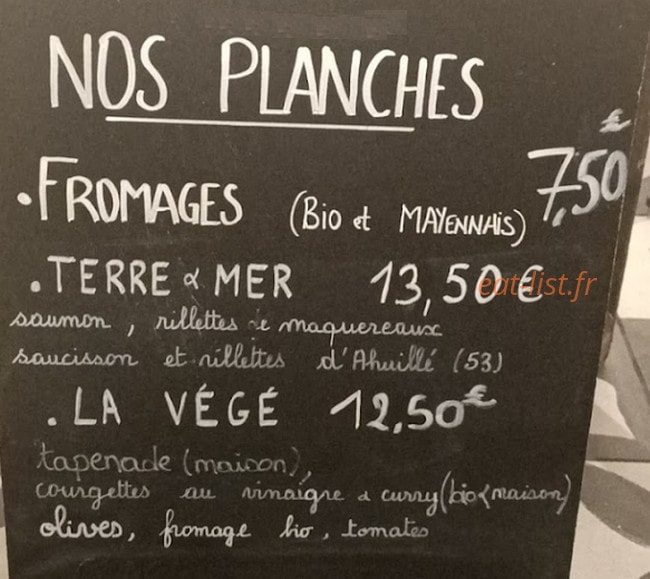 NOS PLANCHES
€
. FROMAGES (Bio et MAYENNAiS) 7,50
. TERRE & MER 13,50 €
eat-list.fr
saumon, rillettes de maquereaux
saucisson et rillettes d'Ahuillé (53)
. LA VÉGÉ 12,50€
tapenade (maison),
courgettes au vinaigre & curry (bio & maison)
olives, fromage bio, tomates